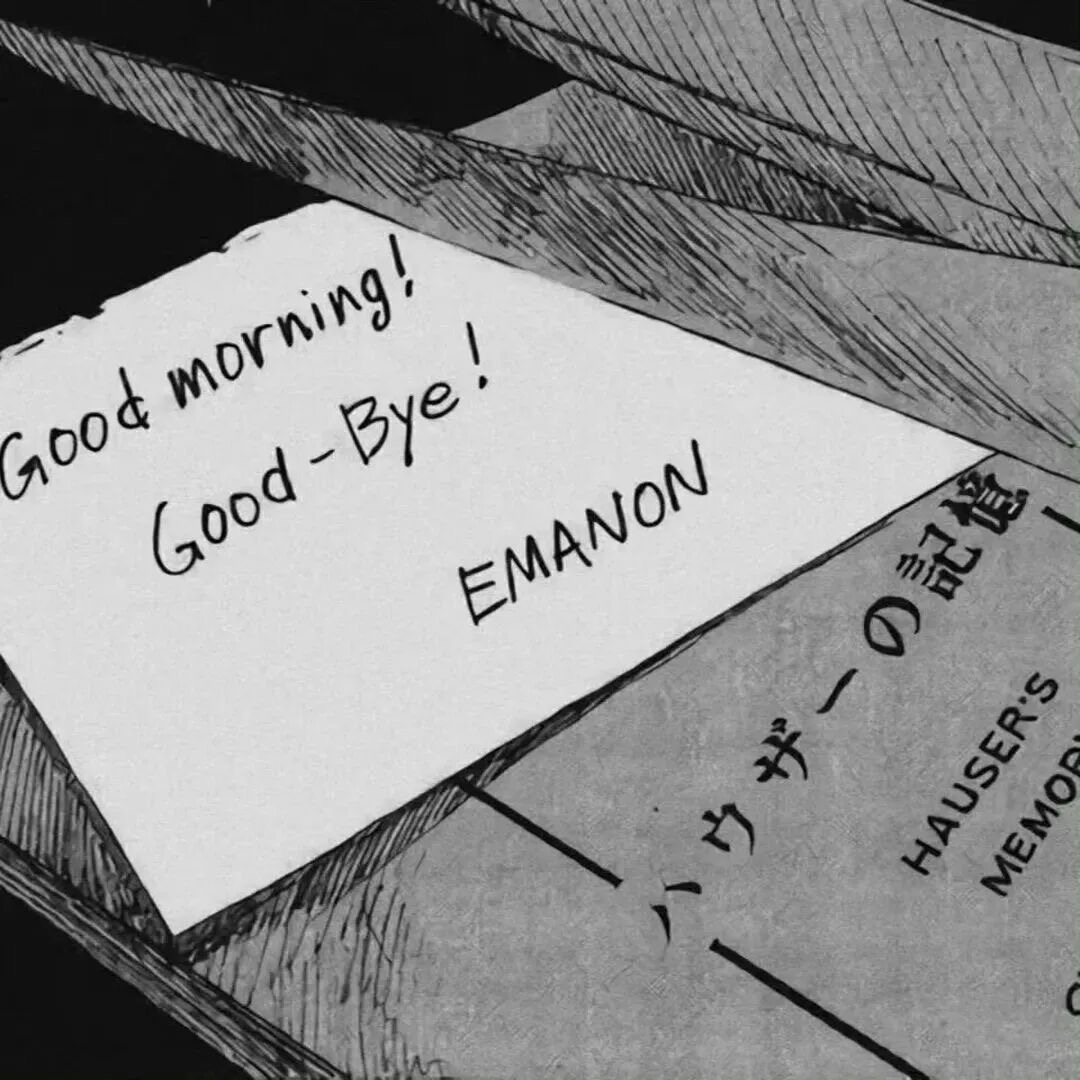 Good morning!
Good-Bye!
EMANON
ハウザーの記憶
HAUSER'S